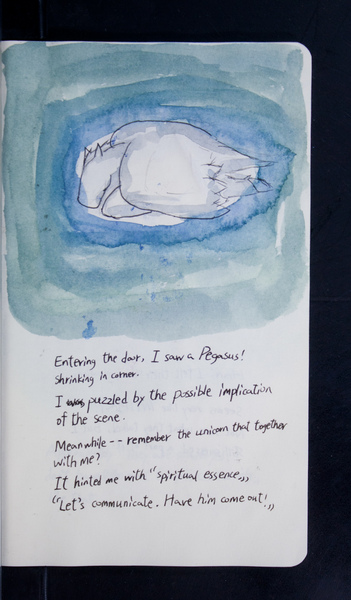 Entering the door, I saw a Pegasus!
shrinking in corner.
I was puzzled by the possible implication
of the scene.
Meanwhile -- remember the unicorn that together
with me?
It hinted me with "spiritual essence„
"Let's communicate. Have him come out!„